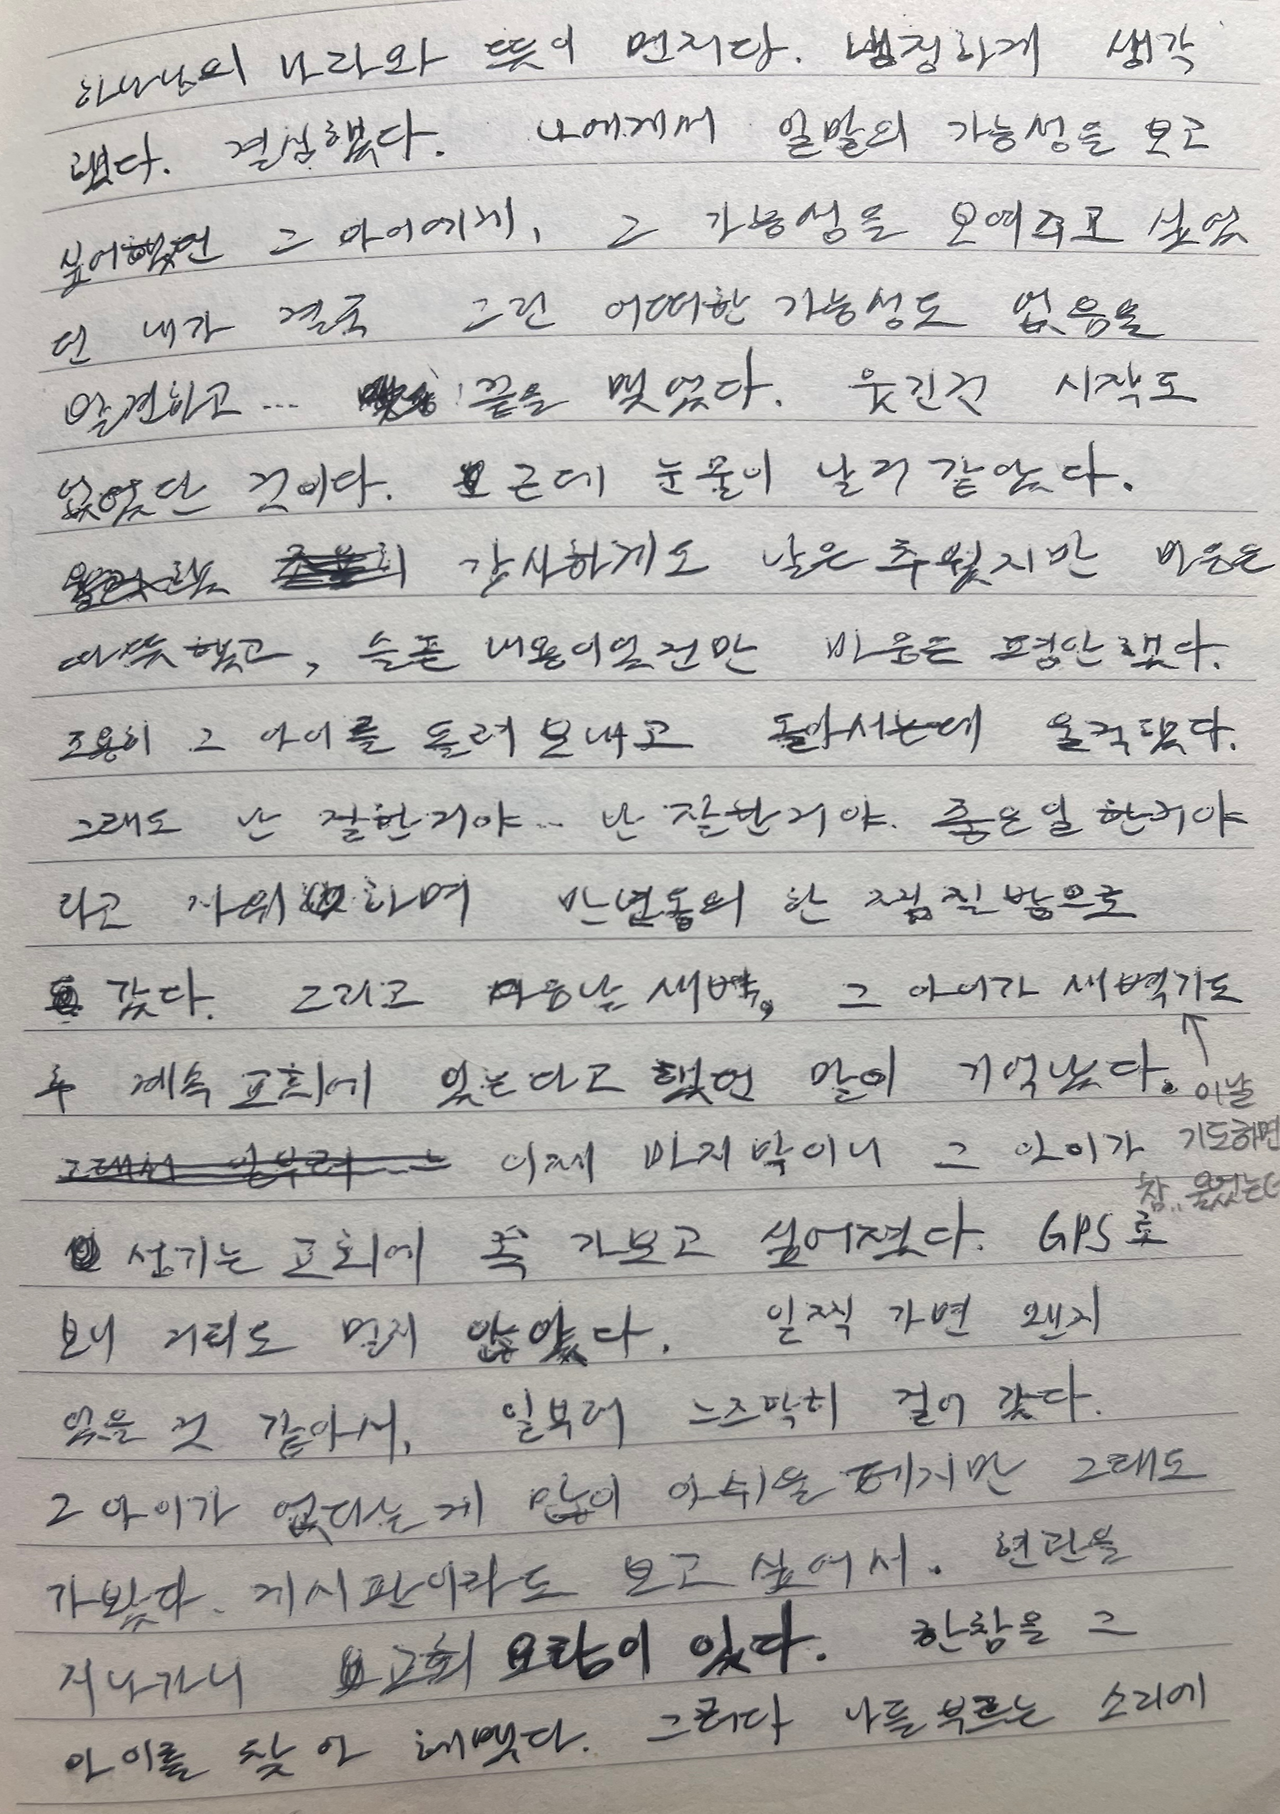 하나님의 나라와 뜻이 먼저다. 냉정하게 생각
했다. 결심했다. 나에게서 일말의 가능성을 보고
싶어했던 그 아이에게, 그 가능성을 보여주고 싶었
던 내가 결국 그런 어떠한 가능성도 없음을
발견하고... 끝을 맺었다. 웃긴건 시작도
없었단 것이다. 근데 눈물이 날거 같았다.
감사하게도 날은 추웠지만 마음은
따뜻했고, 슬픈 내용이었건만 마음은 평안했다.
조용히 그 아이를 돌려 보내고 돌아서는데 울컥했다.
그래도 난 잘한거야.. 난 잘한거야. 좋은일 한거야
라고 자위하며 만년동의 한 찜질방으로
갔다. 그리고 다음날 새벽, 그 아이가 새벽기도
후 계속 교회에 있는다고 했던 말이 기억났다.
이날
기도하면
참.. 울었는데
이제 마지막이니 그 아이가
섬기는 교회에 꼭 가보고 싶어졌다. GPS로
보니 거리도 멀지 않았다. 일찍 가면 왠지
있을 것 같아서, 일부러 느즈막히 걸어 갔다.
그 아이가 없다는게 많이 아쉬울 테지만 그래도
가봤다. 게시판이라도 보고 싶어서. 현관을
지나가니 교회 요람이 있다. 한참을 그
아이를 찾아 헤맸다. 그러다 나를 부르는 소리에